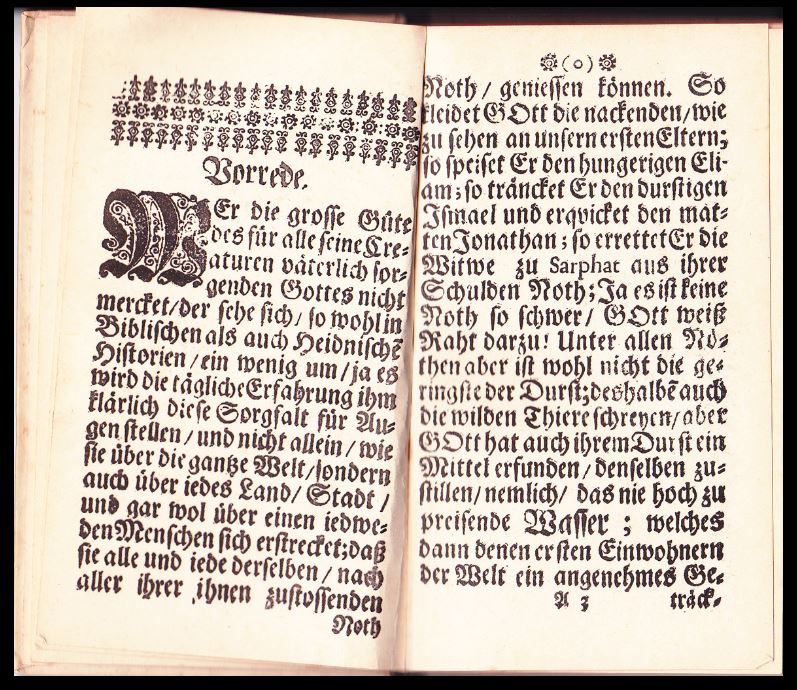 Vorrede.
WEr die grosse Güte
des für alle seine Cre-
aturen väterlich sor-
genden Gottes nicht
mercket/der sehe sich/ so wohl in
Biblischen als auch Heidnischē
Historien/ein wenig um/ja es
wird die tägliche Erfahrung ihm
klärlich diese Sorgfalt für Au-
gen stellen/und nicht allein/wie
sie über die gantze Welt/sondern
auch über iedes Land/ Stadt/
und gar wol über einen iedwe-
den Menschen sich erstrecket;daß
sie alle und iede derselben/nach
aller ihrer ihnen zustossenden
Noth
(o)
Noth/ geniessen können. So
kleidet GOtt die nackenden/wie
zu sehen an unsern ersten Eltern;
so speiset Er den hungerigen Eli-
am;so träncket Er den durstigen
Ismael und erqvicket den mat-
ten Jonathan; so errettet Er die
Witwe zu Sarphat aus ihrer
Schulden Noth;Ja es ist keine
Noth so schwer/ GOtt weiß
Raht darzu! Unter allen Nö-
then aber ist wohl nicht die ge-
ringste der Durst;deshalbē auch
die wilden Thiere schreyen/aber
GOtt hat auch ihrem Durst ein
Mittel erfunden/denselben zu-
stillen/nemlich/ das nie hoch zu
preisende Wasser; welches
dann denen ersten Einwohnern
der Welt ein angenehmes Ge-
A 3 träck-